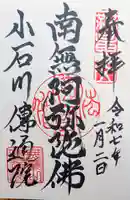 奉拝
令和七年
月二日
南無阿弥陀佛
小石川傳通院